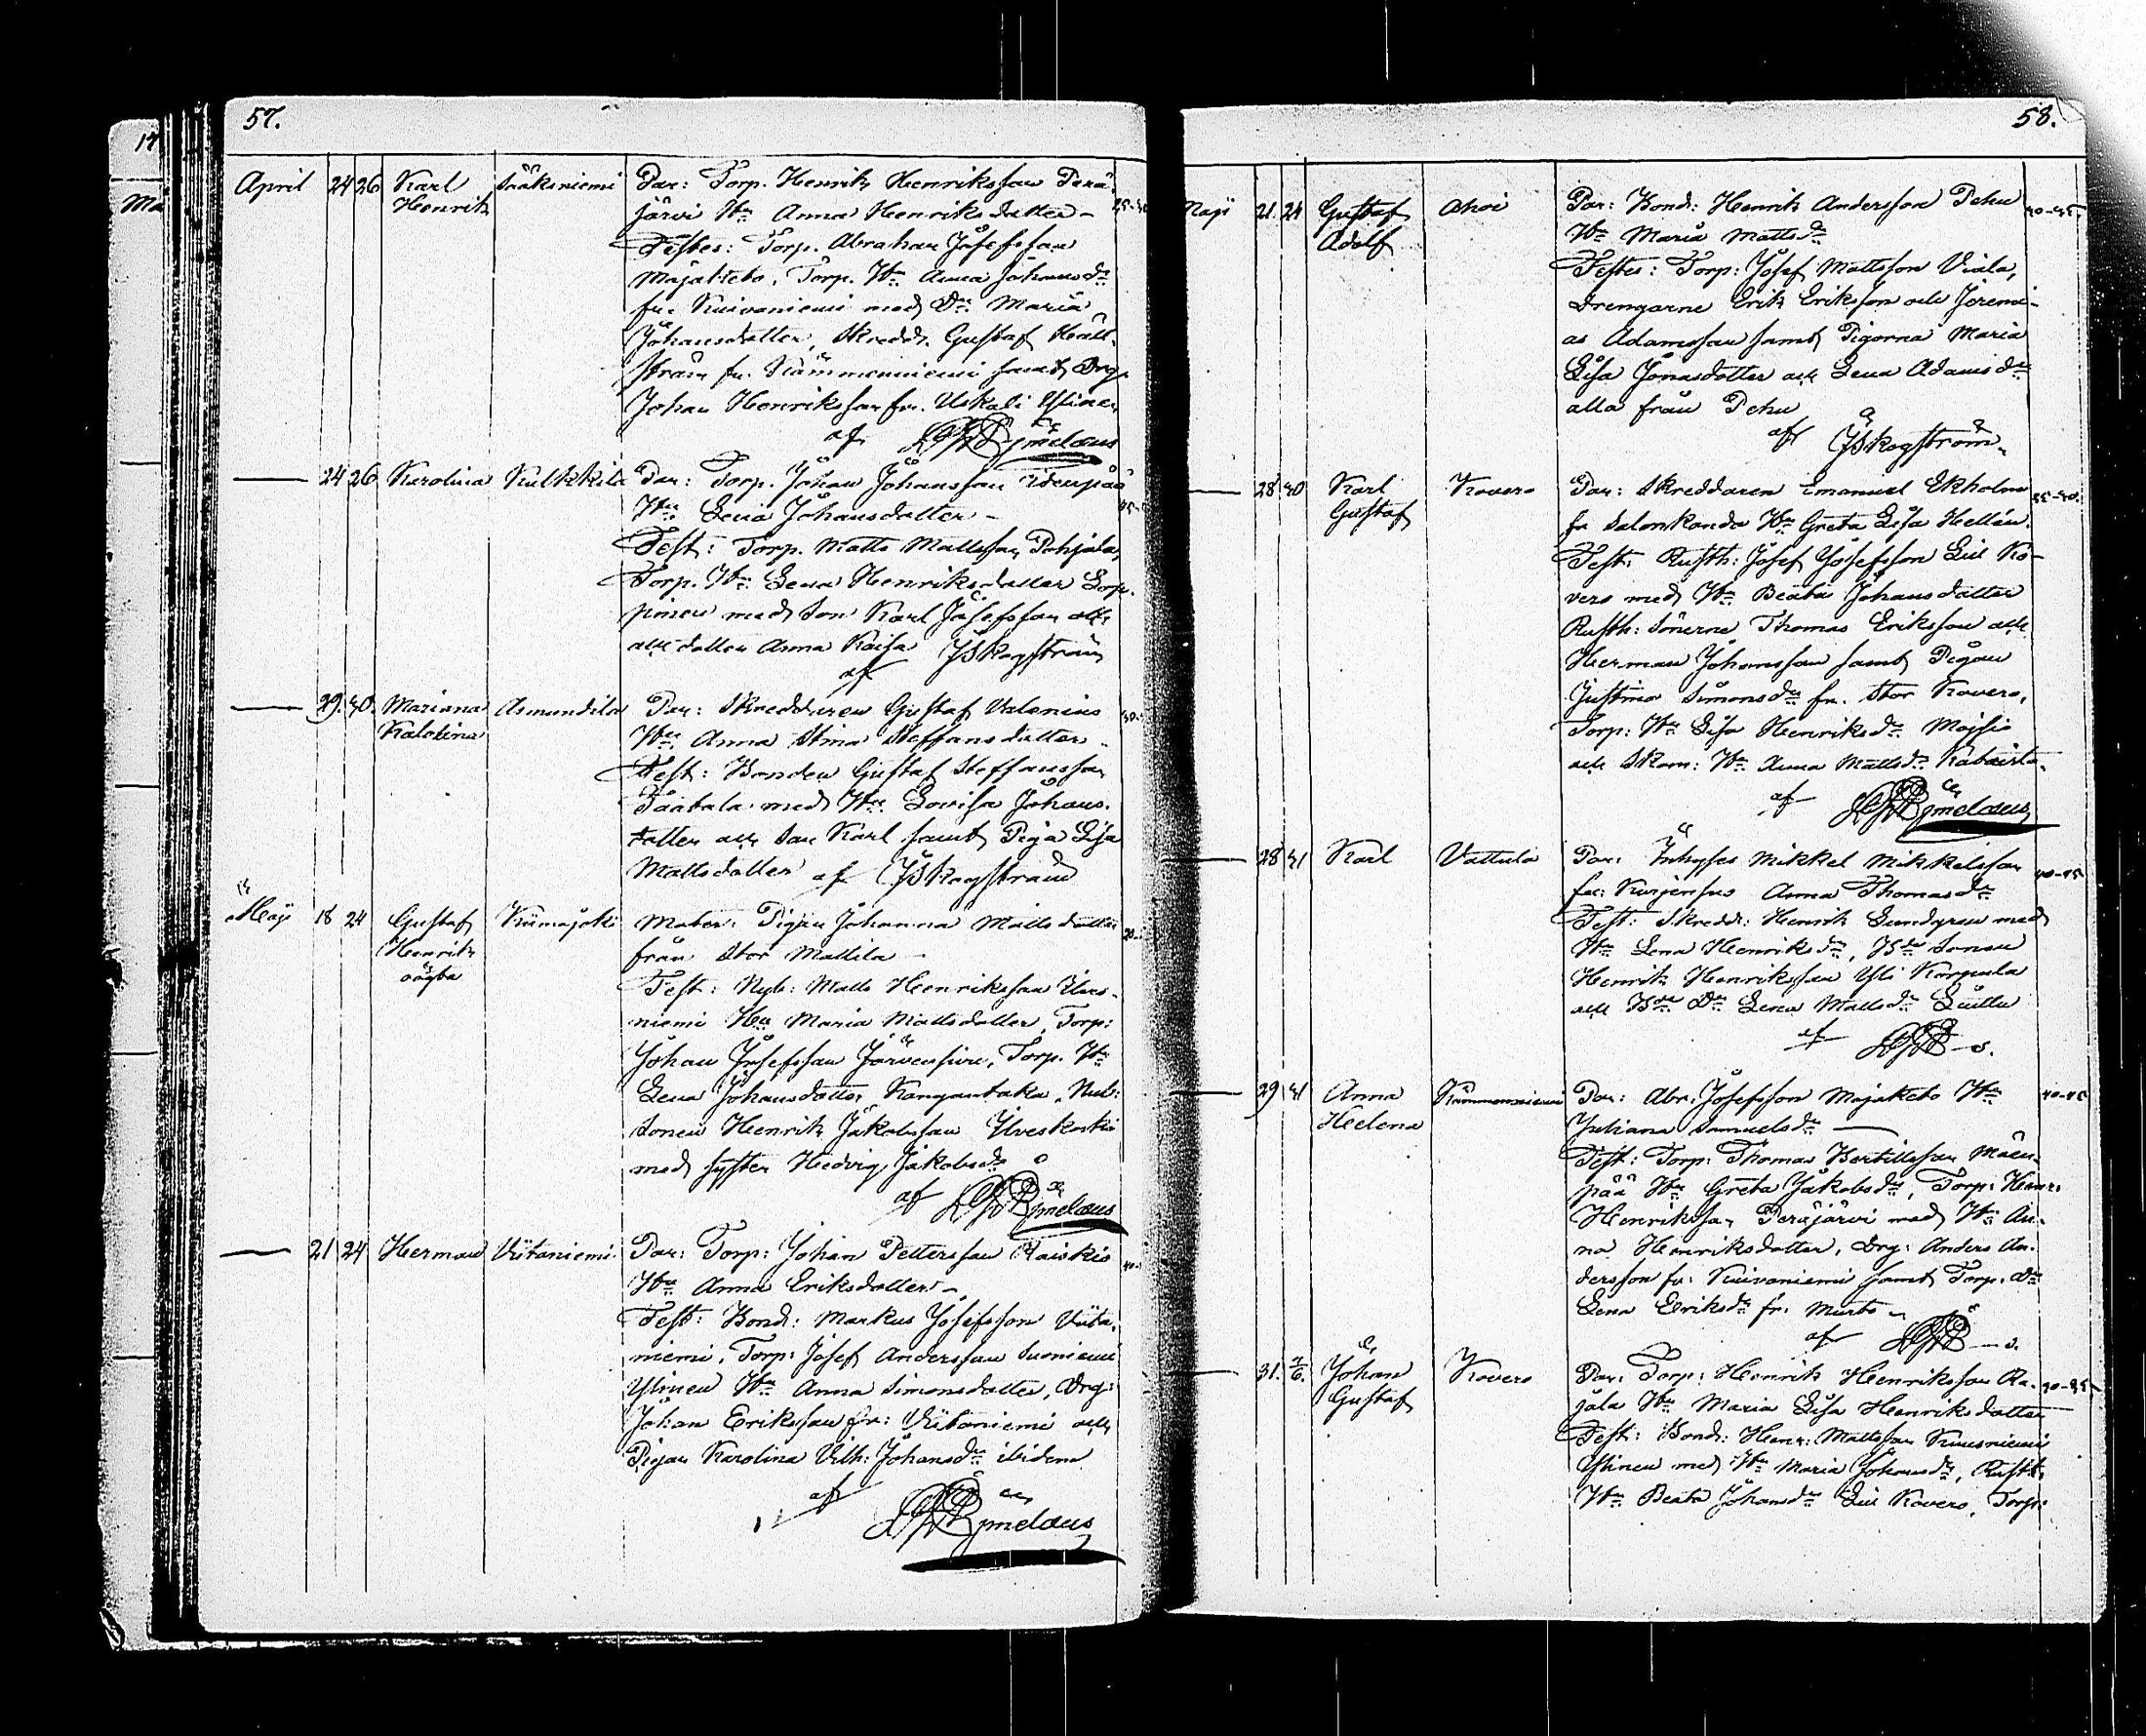 57.
April 24 26 Karl Henrik Sääksniemi Par: Torp. Henrik Henriksson Perä-
järvi Hu Anna Henriksdotter –
Testes: Torp. Abraham Josefsson
Majaketo, Torp. Hu Anna Johansdr
fr. Kuivaniemi med Dr. Maria
Johansdotter, Skredd. Gustaf Häll-
ström fr. Kämmenniemi samt Drg.
Johan Henriksson fr. Uskali Ylinen
af
24 26 Karolina Kulkkila Par: Torp. Johan Johansson
Hu: Lena Johansdotter –
Test: Torp. Matts Mattsson Pohjala,
Torp. Hu: Lena Henriksdotter Lorp-
pinen med Son Karl Josefsson och
och dotter Anna Kaisa
af JSkogström
29. 30. Mariana Asmundila Par: Skreddaren Gustaf Valenius
Hu Anna Stina Steffansdotter –
Test: Bonden Gustaf Steffansson
Paatala med Hu Lovisa Johans-
dotter och Son Karl samt Piga Lisa
Mattsdotter af JSkogström
Maji 18 24 Gustaf Henrik oägta Kiimajoki Mater: Pigan Johanna Mattsdotter
från Stor Mattila –
Test: Nyb: Matts Henriksson
niemi Hu Maria Mattsdotter, Torp:
Johan Josefsson Järvensivu, Torp. Hu
Lena Johansdotter Kangantaka,
Sonen Henrik Jakobsson Ylveskoski
med syster Hedvig Jakobsdr
af
21 24 Herman Viitaniemi Par: Torp: Johan Pettersson Raiskio
Hu Anna Eriksdotter –
Test: Bond: Markus Josefsson Viita-
niemi, Torp: Josef Andersson Suoniemi
Ylinen Hu Anna Simonsdotter, Drg:
Johan Eriksson fr: Viitaniemi och
Pigan Karolina Vilh: Johansdr ibidem
af
58.
Maji 21. 24 Gustaf Adolf Ahoi Par: Bond: Henrik Andersson Pehu 40-45.
Hu Maria Mattsdr
Testes: Torp: Josef Mattsson Viala,
Drengarne Erik Eriksson och Jeremi-
as Adamsson samt Pigorna Maria
Lisa Jonasdotter och Lena Adamsdr
alla från Pehu
af JSkogström
28 30 Karl Gustaf Kovero Par: Skreddaren Emanuel Ekholm
fr Salonkanda Hu Greta Lisa Hellén.
Test: Rusth: Josef Josefsson Lill Ko-
vero med Hu Beata Johansdotter
Rusth: Sönerne Thomas Eriksson och
Herman Johansson samt Pigan
Justina Simonsdr fr. Stor Kovero,
Torp: Hu Lisa Henriksdr Moisio
och Skom: Hu Anna Mattsdr
af
28 31 Karl Vattula Par: Inhyses Mikkel Mikkelsson 40-45
fr: Kurjensuo Anna Thomasdr
Test: Skredd: Henrik Lundgren med
Hu Lena Henriksdr, Bde Sonen
Henrik Henriksson Yli Korpula
och Bde Dr Lena Mattsdr
af
29 31 Anna Helena Kämmenniemi Par: Abr: Josefsson Majaketo Hu 40-45
Juliana Samuelsdr –
Test: Torp: Thomas Bertillsson Mäen-
pää Hu Greta Jakobsdr, Torp: Henr:
Henriksson Peräjärvi med Hu An-
na Henriksdotter, Drg: Anders An-
dersson fr: Kuivaniemi samt Torp: Dr
Lena Eriksdr fr. Murto –
af
31. Johan Gustaf Kovero Par: Torp: Henrik Henriksson Ra-
jala Hu Maria Lisa Henriksdotter
Test: Bond: Henr: Mattsson
Ylinen med Hu Maria Johansdr, Rusth
Hu Beata Johansdr Lill Kovero, Torp: